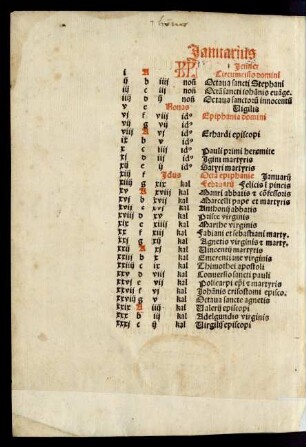 Januarius
i A Circumcisio domini
ij b iiij noñ Octaua sancti Stephani
iij c iij noñ Octã sancti iohãnis euãge.
iiij d ij noñ Octaua sanctorũ innocentũ
v e Nonas Vigilia
vj f viij idꝰ Epiphania domini
vij g vij idꝰ
viij A vj idꝰ Erhardi episcopi
ix b v idꝰ
x c iiij idꝰ Pauli primi heramite
xj d iij idꝰ Igini martyris
xij e ij idꝰ Satyri martyris
xiij f Jdus Octã epiphanie Januarij
xiiij g xix kal Februarij Felicis ĩ pincis
xv A xviij kal Mauri abbatis τ cõfessoris
xvj b xvij kal Marcelli pape et martyris
xvij c xvj kal Anthonij abbatis
xviij d xv kal Prisce virginis
xix e xiiij kal Marthe virginis
xx f xiij kal Fabiani et sebastiani marty.
xxj g xij kal Agnetis virginis τ marty.
xxij A xj kal Vincentij martyris
xxiij b x kal Emerentiane virginis
xxiiij c ix kal Thimothei apostoli
xxv d viij kal Conuersio sancti pauli
xxvj e vij kal Policarpi epĩ τ martyris
xxvij f vj kal Johãnis crisostomi episco.
xxviij g v kal Octaua sancte agnetis
xxix A iiij kal Valerij episcopi
xxx b iij kal Adelgundis virginis
xxxj c ij kal Virgilij episcopi